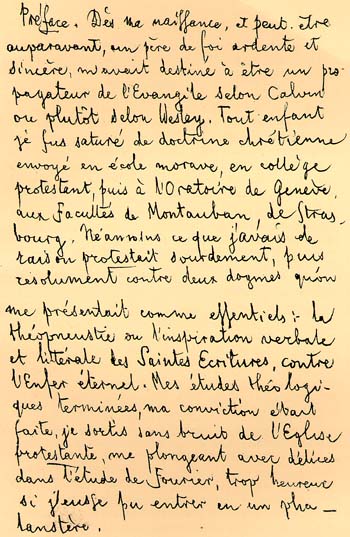 Préface. Dès ma naissance, et peut-être
auparavant, un père de foi ardente et
sincère, m'avait destiné à être un pro-
pagateur de l'Evangile selon Calvin
ou plutôt selon Wesley. Tout enfant
je fus saturé de doctrine chrétienne
envoyé en école morave, en collège
protestant, puis à l'Oratoire de Genève,
aux Facultés de Montauban, de Stras-
bourg. Néanmoins ce que j'avais de
raison protestait sourdement, puis
résolument contre deux dogmes qu'on
me présentait comme essentiels :- la
théopneustie ou l'inspiration verbale
et littérale des Saintes Ecritures, contre
l'Enfer éternel. Mes études théologi-
ques terminées, ma conviction était
faite, je sortis sans bruit de l'Eglise
protestante, me plongeant avec délices
dans l'étude de Fourier, trop heureux
si j'eusse pu entrer en un pha-
lanstère.